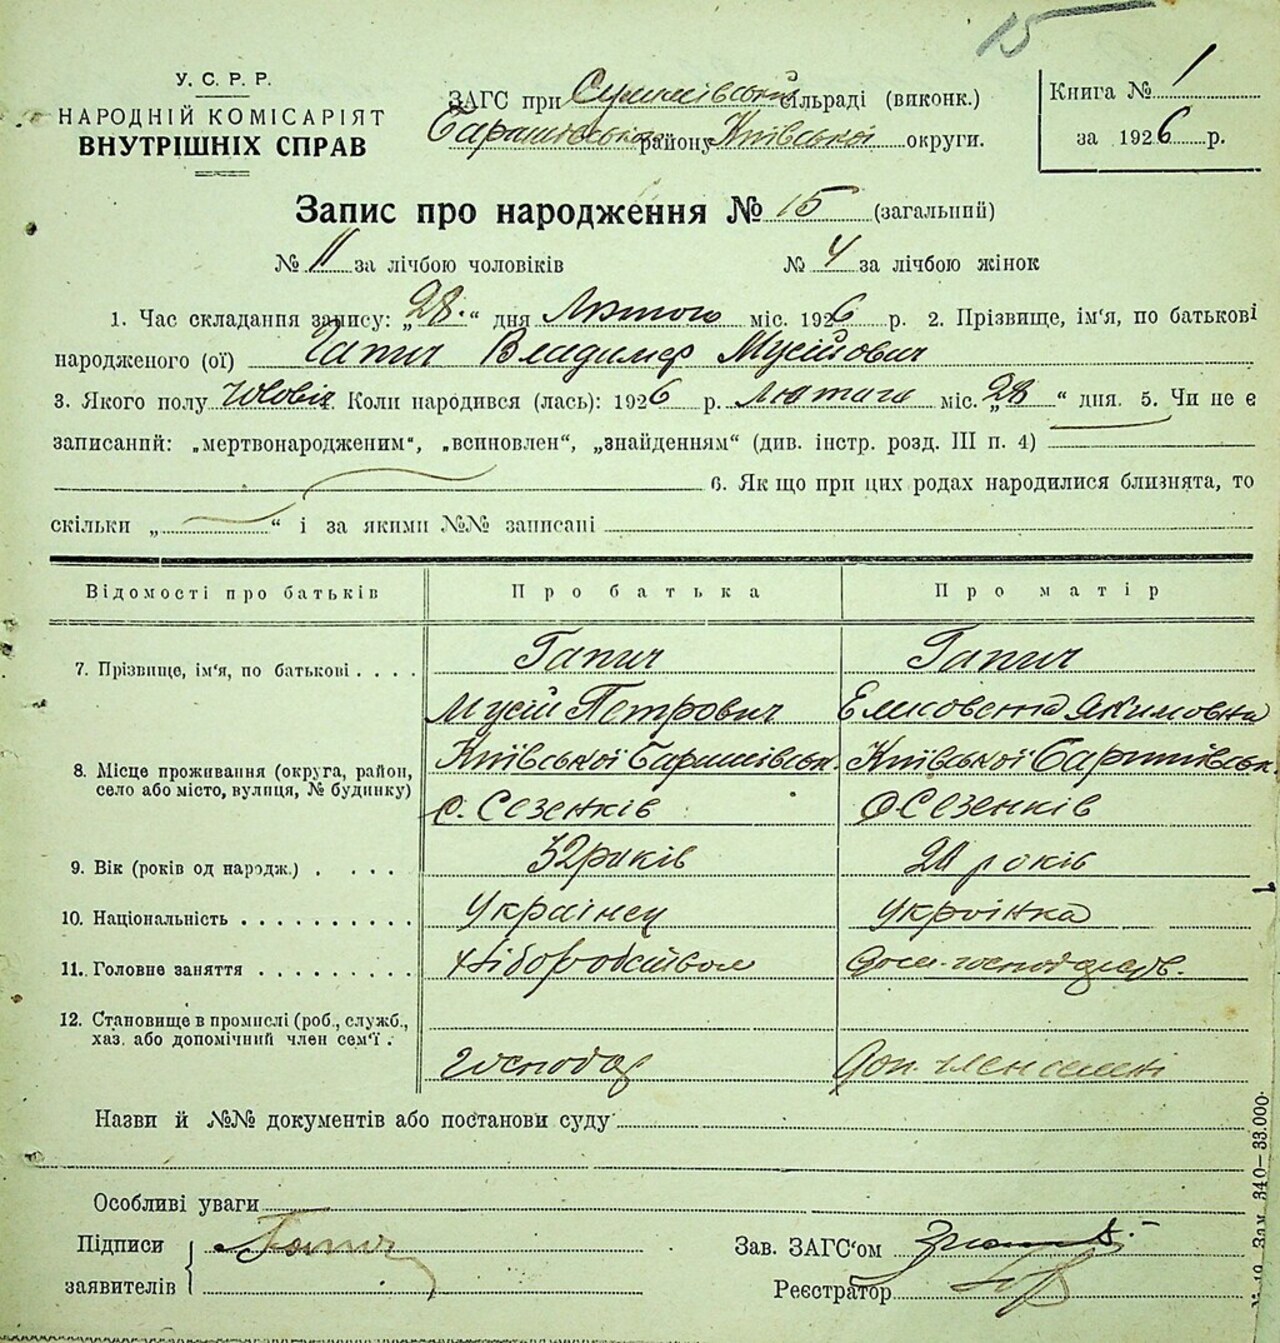 15
У. С. Р. Р.
НАРОДНІЙ КОМІСАРІЯТ
ВНУТРІШНІХ СПРАВ
ЗАГС при сільраді (виконк.)
району Київської округи.
Книга № 1
за 1926 р.
Запис про народження № 15 (загальний)
№ 11 за лічбою чоловіків № 4 за лічбою жінок
1. Час складання запису: „28.“ дня Лютого міс. 1926 р. 2. Прізвище, ім'я, по батькові
народженого (ої) Гапич Владимер Мусійович
3. Якого полу Чоловіч. Коли народився (лась): 1926 р. лютаго міс. „28“ дня. 5. Чи не є
записаний: „мертвонародженим“, „всиновлен“, „знайденням“ (див. інстр. розд. III п. 4)
6. Якщо при цих родах народилися близнята, то
скільки „ “ і за якими №№ записані
Відомості про батьків Про батька Про матір
7. Прізвище, ім'я, по батькові Гапич Гапич
Мусій Петрович Елисовета Якимовна
8. Місце проживання (округа, район, село або місто, вулиця, № будинку) Київської Баришівськ. Київської Баришівськ.
с. Сезенків с. Сезенків
9. Вік (років од народж.) 32 років 20 років
10. Національність Українец Українка
11. Головне заняття Хліборобством
12. Становище в промислі (роб., служб.,
хаз. або допомічний член сем'ї.
Господар Доп. член семні
Назви й №№ документів або постанови суду
Особливі уваги
Підписи Гапич Зав. ЗАГС'ом
заявителів Реєстратор
Зам. 340—33.000.